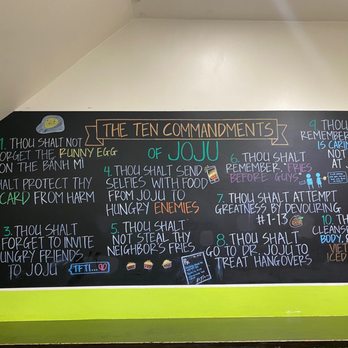 THE TEN COMMANDMENTS
OF JOJU
1. THOU SHALT NOT
FORGET THE RUNNY EGG
ON THE BANH MI
HALT PROTECT THY
CARD FROM HARM
3. THOU SHALT
FORGET TO INVITE
HUNGRY FRIENDS
TO JOJU
TFTI...
4. THOU SHALT SEND
SELFIES WITH FOOD
FROM JOJU TO
HUNGRY ENEMIES
5. THOU SHALT
NOT STEAL THY
NEIGHBORS FRIES
6. THOU SHALT
REMEMBER, FRIES
BEFORE GUYS
7. THOU SHALT ATTEMPT
GREATNESS BY DEVOURING
#1-13
8. THOU SHALT
GO TO DR. JOJU TO
TREAT HANGOVERS
9. THOU
REMEMBE
IS CARIN
NOT
AT J
10. THO
CLEANSE
BODY,
VIET
ICED